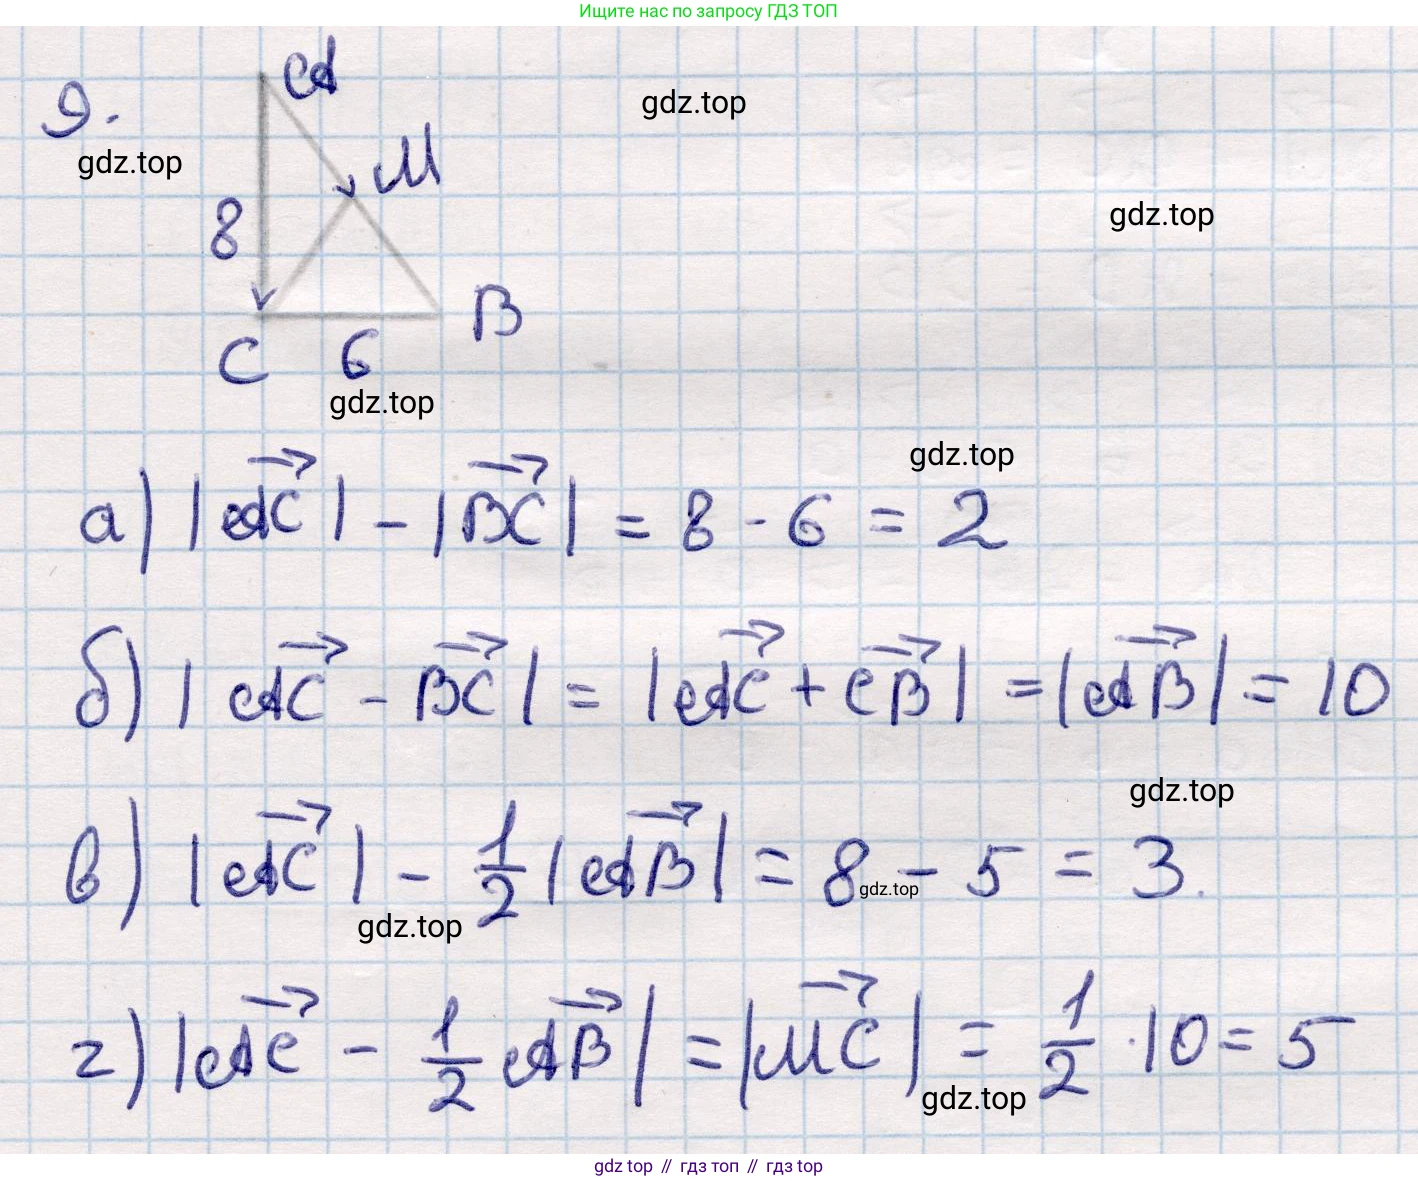 Ищите нас по запросу ГДЗ ТОП
9.
A
gdz.top
gdz.top
M
8
gdz.top
B
C 6
gdz.top
gdz.top
а) |AC| - |BC| = 8 - 6 = 2
б) |AC - BC| = |AC + CB| = |AB| = 10
gdz.top
в) |AC| - 1/2 |AB| = 8 - 5 = 3.
gdz.top
gdz.top
г) |AC - 1/2 AB| = |MC| = 1/2 · 10 = 5
gdz.top
gdz top // гдз топ // гдз top